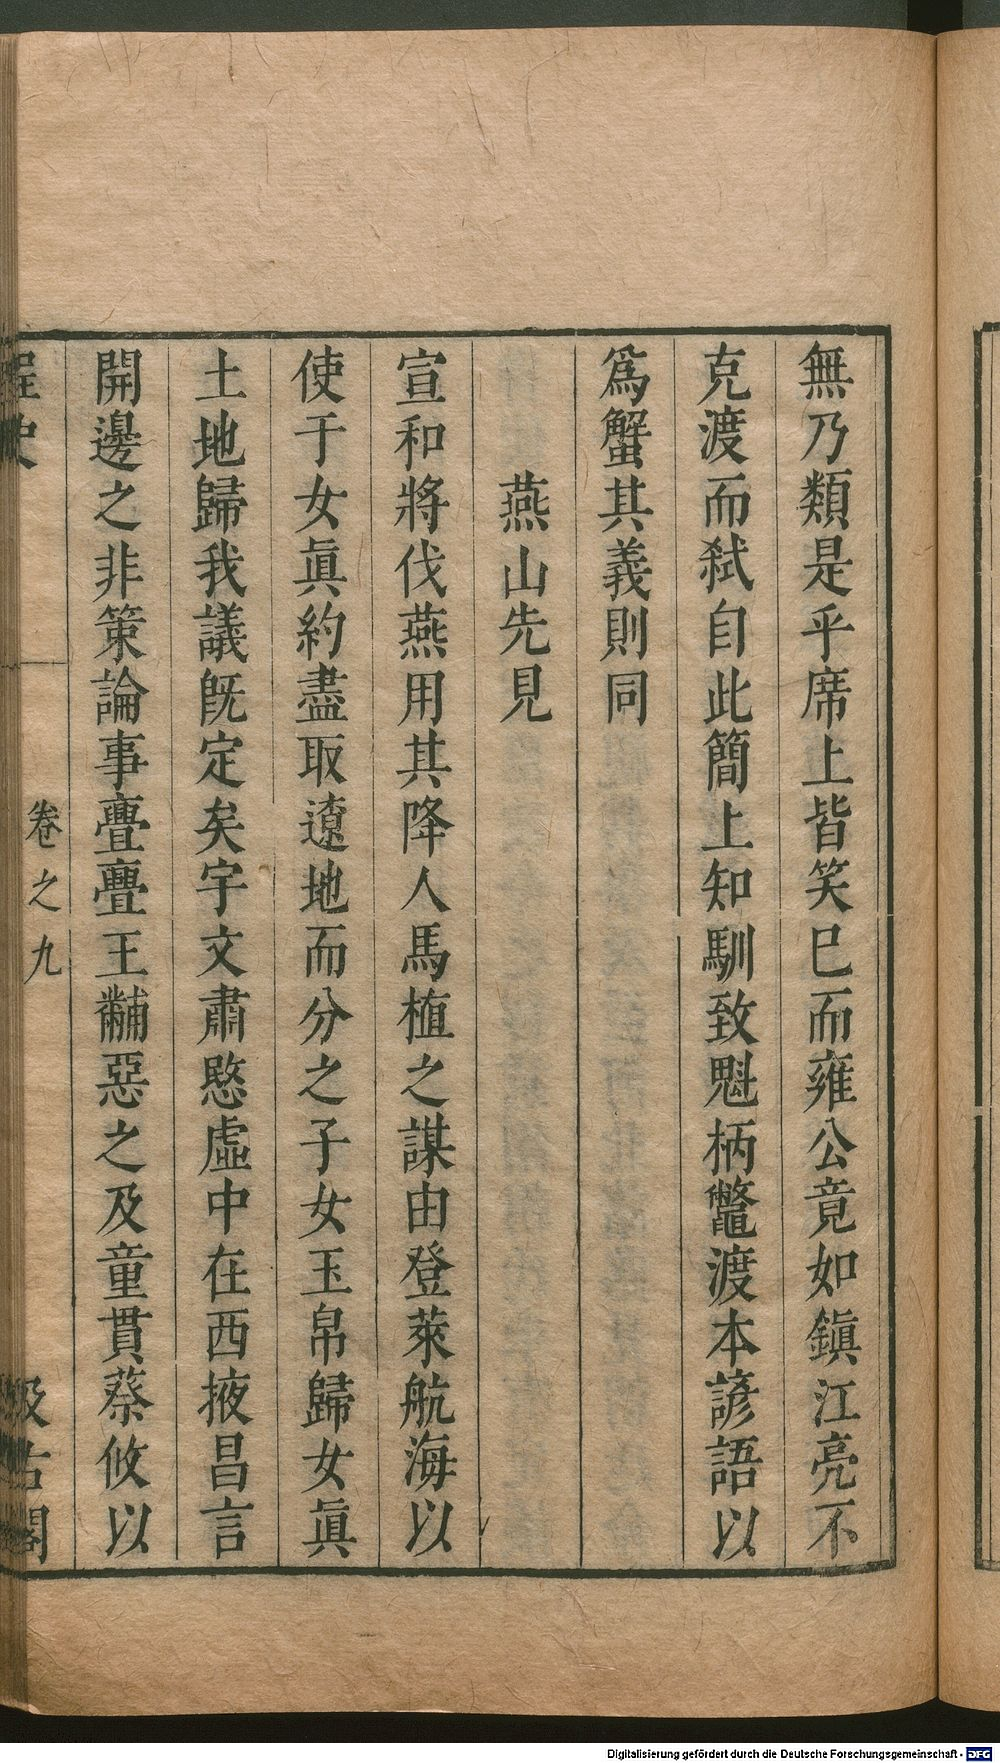 無乃類是乎席上皆笑巳而雍公竟如鎮江亮不
克渡而弑自此簡上知馴致魁柄鼈渡本諺語以
爲蟹其義則同
燕山先見
宣和將伐燕用其降人馬植之謀由登萊航海以
使于女眞約盡取遼地而分之子女玉帛歸女眞
土地歸我議旣定矣宇文肅愍虛中在西掖昌言
開邊之非策論事亹亹王黼惡之及童貫蔡攸以
桯史
卷之九
汲古閣
Digitalisierung gefördert durch die Deutsche Forschungsgemeinschaft - DFG